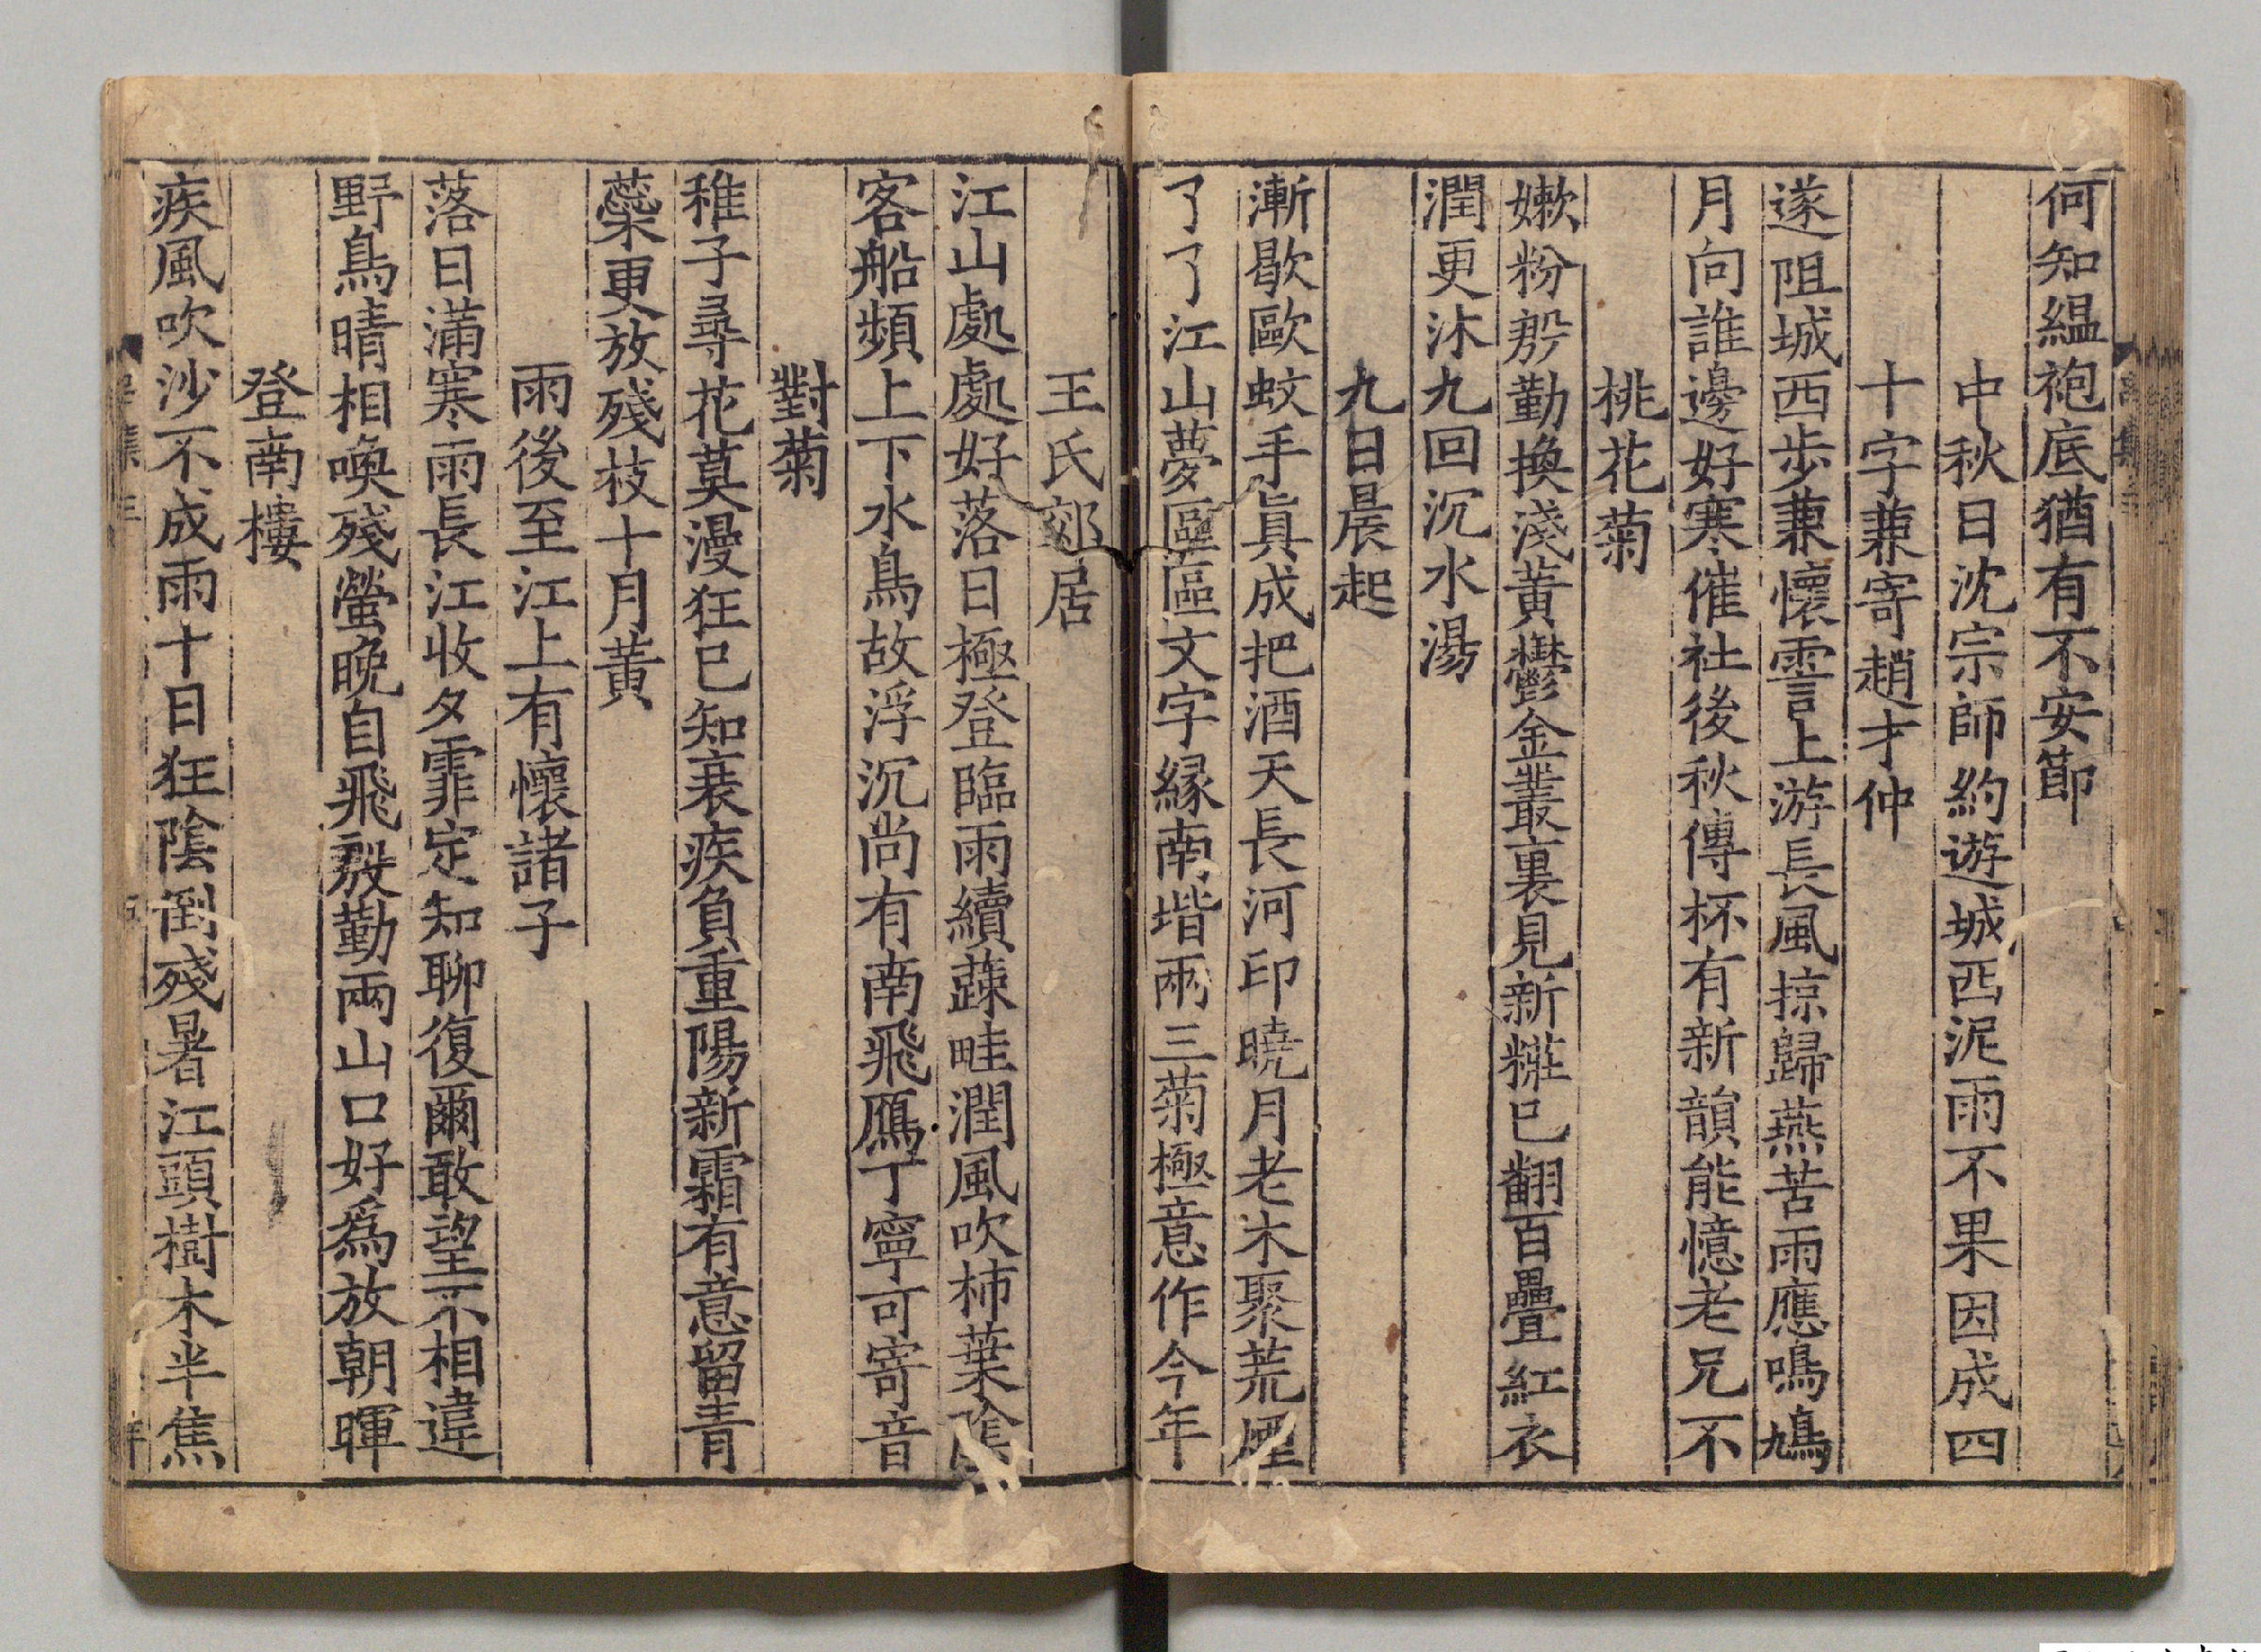 何知縕袍底猶有不安節
中秋日沈宗師約遊城西泥雨不果因成四
十字兼寄趙才仲
遂阻城西步兼懷霅上游長風掠歸燕苦雨應鳴鳩
月向誰邊好寒催社後秋傳杯有新韻能憶老兄不
桃花菊
嫰粉殷勤換淺黃鬱金叢裏見新糚已翻百疊紅衣
潤更沐九回沉水湯
九日晨起
漸歇歐蚊手真成把酒天長河印曉月老木聚荒煙
了了江山夢區區文字緣南堦兩三菊極意作今年
王氏郊居
江山處處好落日極登臨雨續蔬畦潤風吹柿葉陰
客船頻上下水鳥故浮沉尚有南飛鴈丁寧可寄音
對菊
稚子尋花莫漫狂已知衰疾負重陽新霜有意留青
蘂更放殘枝十月黃
雨後至江上有懷諸子
落日滿寒雨長江收夕霏定知聊復爾敢望不相違
野鳥晴相喚殘螢晚自飛殷勤兩山口好為放朝暉
登南樓
疾風吹沙不成雨十日狂陰倒殘暑江頭樹木半焦